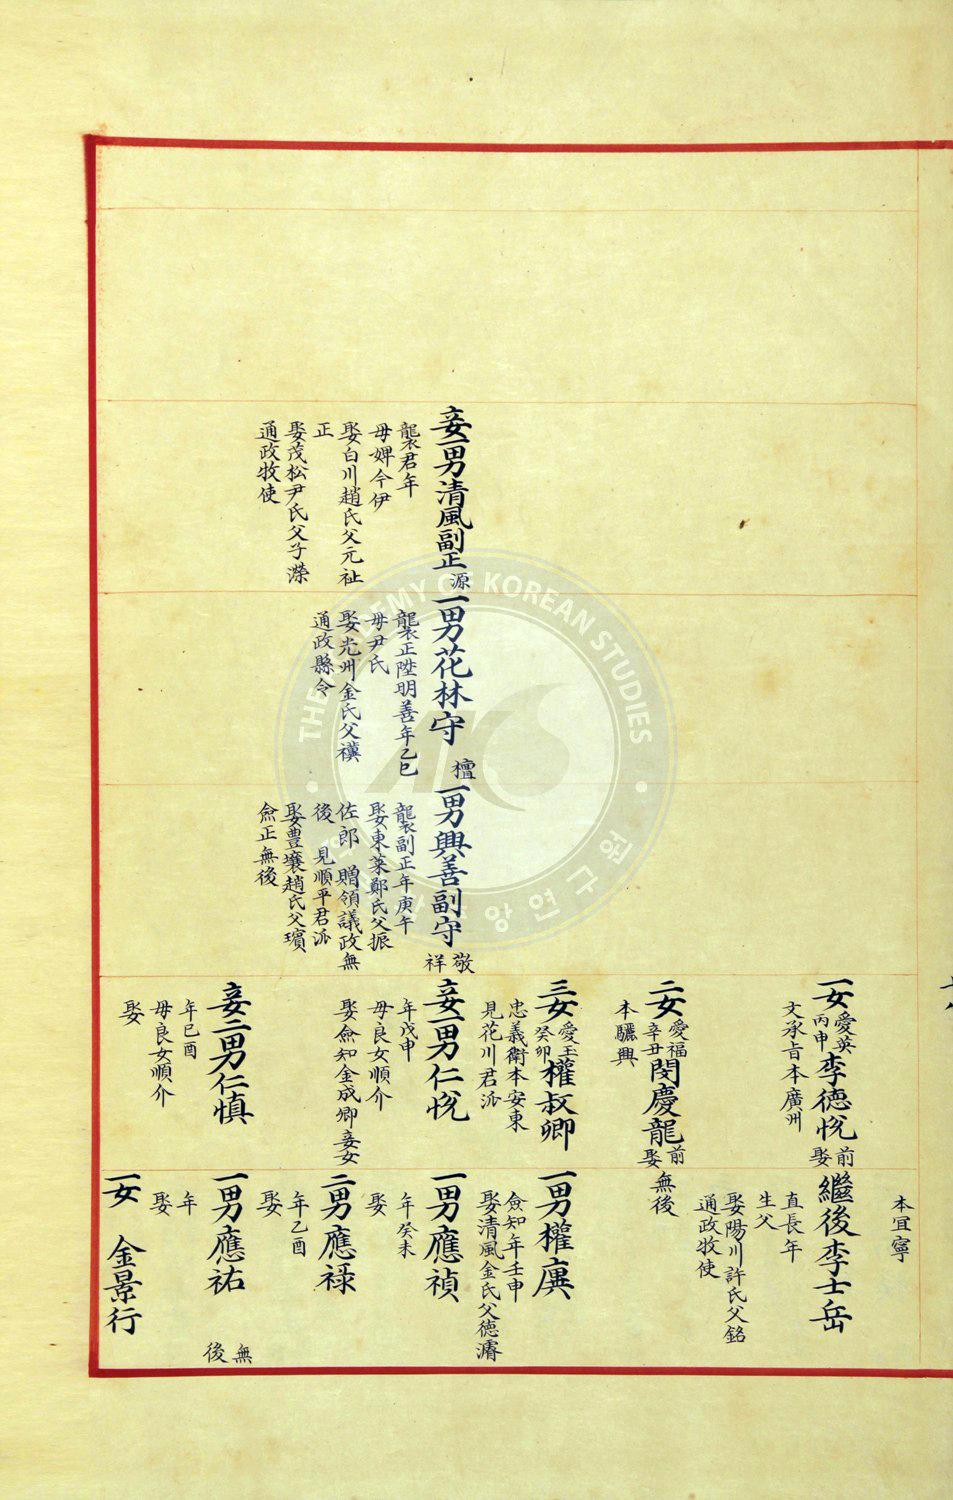 妾一男清風副正 源
龔君年
母婢今伊
娶白川趙氏父元祉
正
娶茂松尹氏父子濚
通政牧使
一男花林守 檀
襲正陞明善年乙巳
母尹氏
娶光州金氏父禶
通政縣令
一男興善副守 敬祥
襲副正年庚午
娶東萊鄭氏父振
佐郎 贈領議政無
後 見順平君派
娶豊壤趙氏父璸
僉正無後
本宜寧
一女 愛英丙申 李德悅 前娶
文承旨本廣州
二女 愛福辛丑 閔慶龍 前娶
本驪興
三女 愛玉癸卯 權叔卿
忠義衛本安東
見花川君派
妾一男仁悅
年戊申
母良女順介
娶僉知金成卿妾女
妾二男仁慎
年己酉
母良女順介
娶
繼後李士岳
直長年
生父
娶陽川許氏父銘
通政牧使
無後
一男權㢘
僉知年壬申
娶清風金氏父德濬
一男應禎
年癸未
娶
二男應祿
年乙酉
娶
一男應祐 無後
年
娶
一女 金景行
THE ACADEMY OF KOREAN STUDIES
AKS
한국학중앙연구원